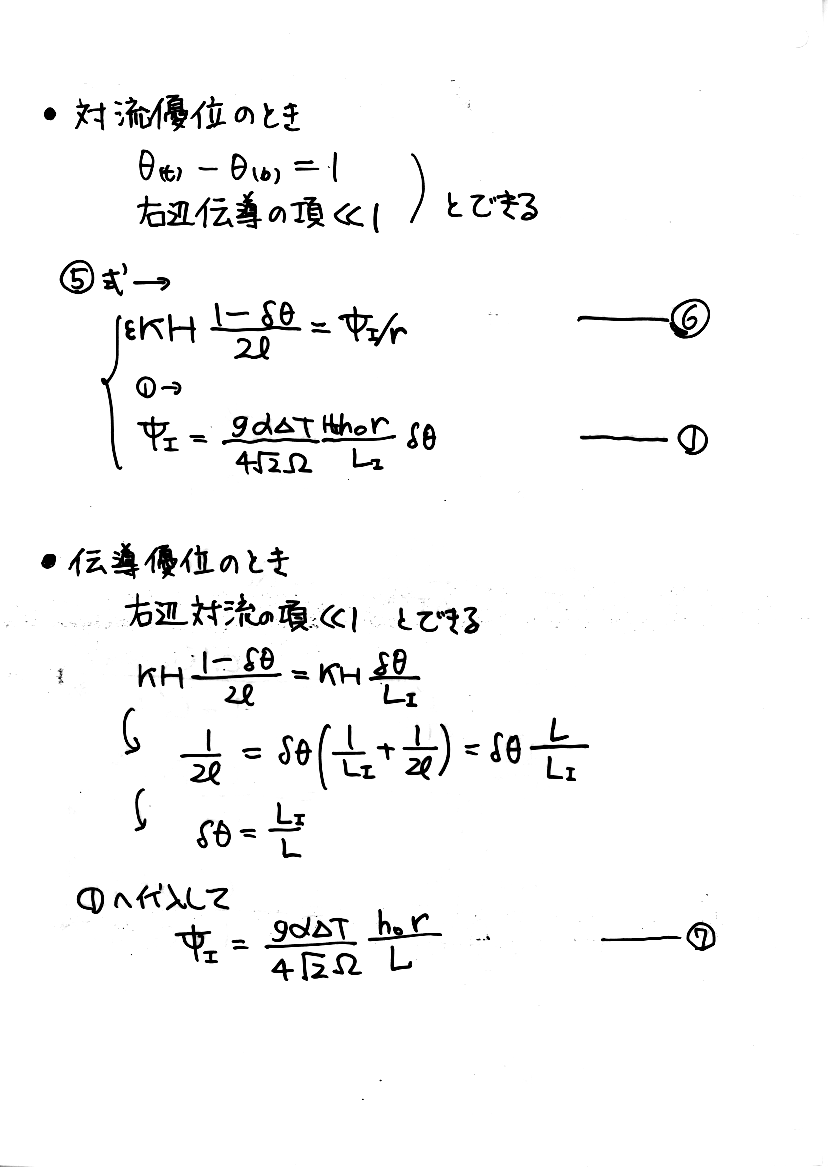 • 対流優位のとき
θ(t) − θ(b) = 1
右辺伝導の項 ≪ 1 ) とできる
⑤式 →
εKH (1−δθ)/2ℓ = Ψ_I/r ——— ⑥
①→
Ψ_I = (gαΔT)/(4√2Ω) (h₀r)/(L_I) δθ ——— ①
• 伝導優位のとき
右辺対流の項 ≪ 1 とできる
KH (1−δθ)/2ℓ = KH δθ/L_I
↓ 1/2ℓ = δθ(1/L_I + 1/2ℓ) = δθ L/L_I
↓ δθ = L_I/L
①へ代入して
Ψ_I = (gαΔT)/(4√2Ω) (h₀r)/L ——— ⑦